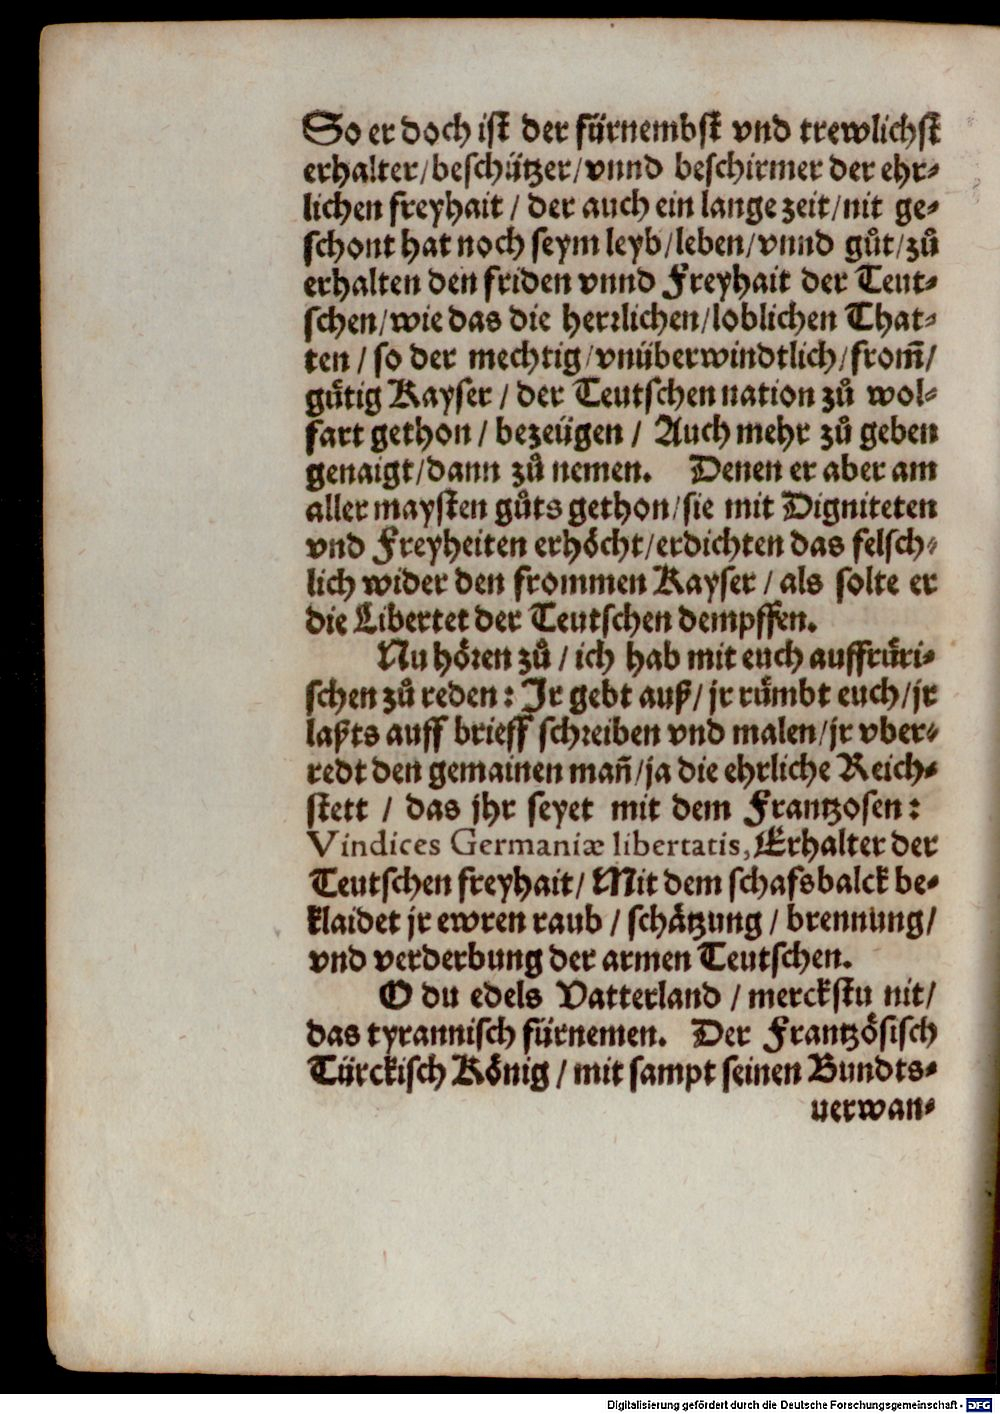 So er doch ist der fürnembst vnd trewlichst
erhalter/beschützer/vnnd beschirmer der ehr⸗
lichen freyhait / der auch ein lange zeit/nit ge⸗
schont hat noch seym leyb/leben/vnnd guͦt/zuͦ
erhalten den friden vnnd Freyhait der Teut⸗
schen/wie das die herꝛlichen/loblichen That⸗
ten / so der mechtig/vnüberwindtlich/from̃/
guͤtig Kayser / der Teutschen nation zuͦ wol⸗
fart gethon / bezeügen / Auch mehr zuͦ geben
genaigt/dann zuͦ nemen. Denen er aber am
aller maysten guͦts gethon/sie mit Digniteten
vnd Freyheiten erhoͤcht/erdichten das felsch⸗
lich wider den frommen Kayser / als solte er
die Libertet der Teutschen dempffen.
Nu hoͤꝛen zuͦ / ich hab mit euch auffruͤri⸗
schen zuͦ reden : Jr gebt auß/ jr ruͤmbt euch/jr
laßts auff brieff schꝛeiben vnd malen/jr vber⸗
redt den gemainen man̄/ja die ehrliche Reich⸗
stett / das jhr seyet mit dem Frantzosen :
Vindices Germaniæ libertatis, Erhalter der
Teutschen freyhait/ Mit dem schafsbalck be⸗
klaidet jr ewren raub / schaͤtzung / brennung/
vnd verderbung der armen Teutschen.
O du edels Vatterland / merckstu nit/
das tyrannisch fürnemen. Der Frantzoͤsisch
Türckisch Koͤnig / mit sampt seinen Bundts⸗
uerwan⸗
Digitalisierung gefördert durch die Deutsche Forschungsgemeinschaft - DFG